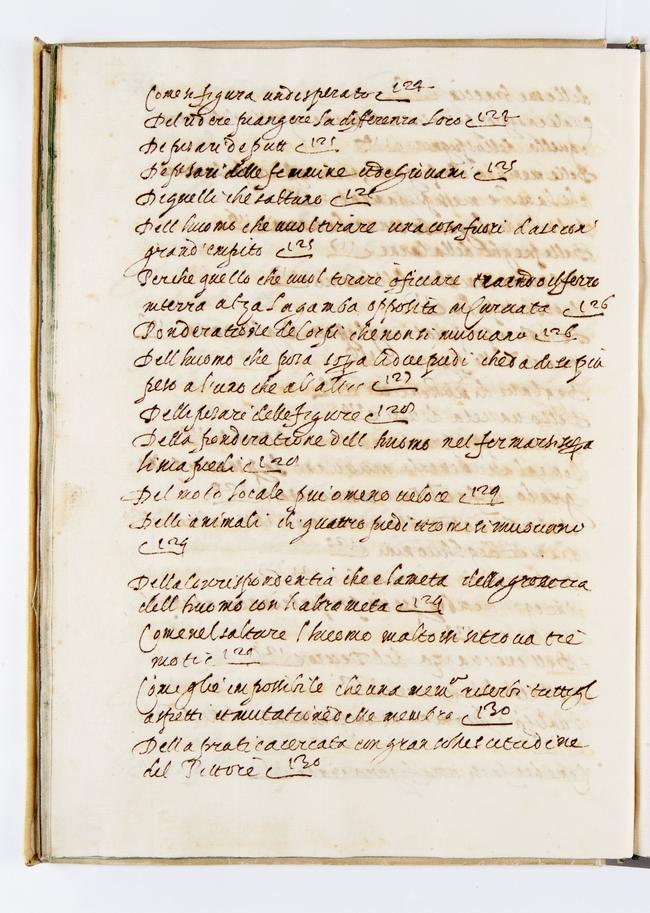 Come si figura un desperato c 124
Del ridere piangere la differenza loro c 123
De posari de putti c 125
De posari delle femmine et de Giovani c 125
De quelli che saltano c 126
Dell huomo che vuol tirare una cosa fuori d a se con
grand' empito c 125
Perche quello che vuol tirare o ficcare traendo il ferro
in terra alza la gamba opposita incurvata c 126
Ponderatione de Corpi che non si muovano c 126
Dell huomo che posa sopra li due piedi che da di se piu
peso a l'uno che a l altro c 127
Delle posare delle figure c 128
Della ponderatione dell huomo nel fermarsi sopra
li piedi c 128
Del moto locale piu o meno veloce c 129
Delli animali di quattro piedi et come si muovano
c 129
Della Correspondentia che e la meta della grossezza
dell huomo con l altra meta c 129
Come nel saltare l huomo in alto vi si trova tre
moti c 129
Come gli e impossibile che una mem.a riserbi tutti gl
aspetti et mutatione delle membra c 130
Della pratica cercata con gran sollecitudine
del Pittore c 130